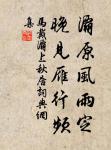 灞原風雨定
晚見雁行頻
馬戴灞上秋居詞典網
集